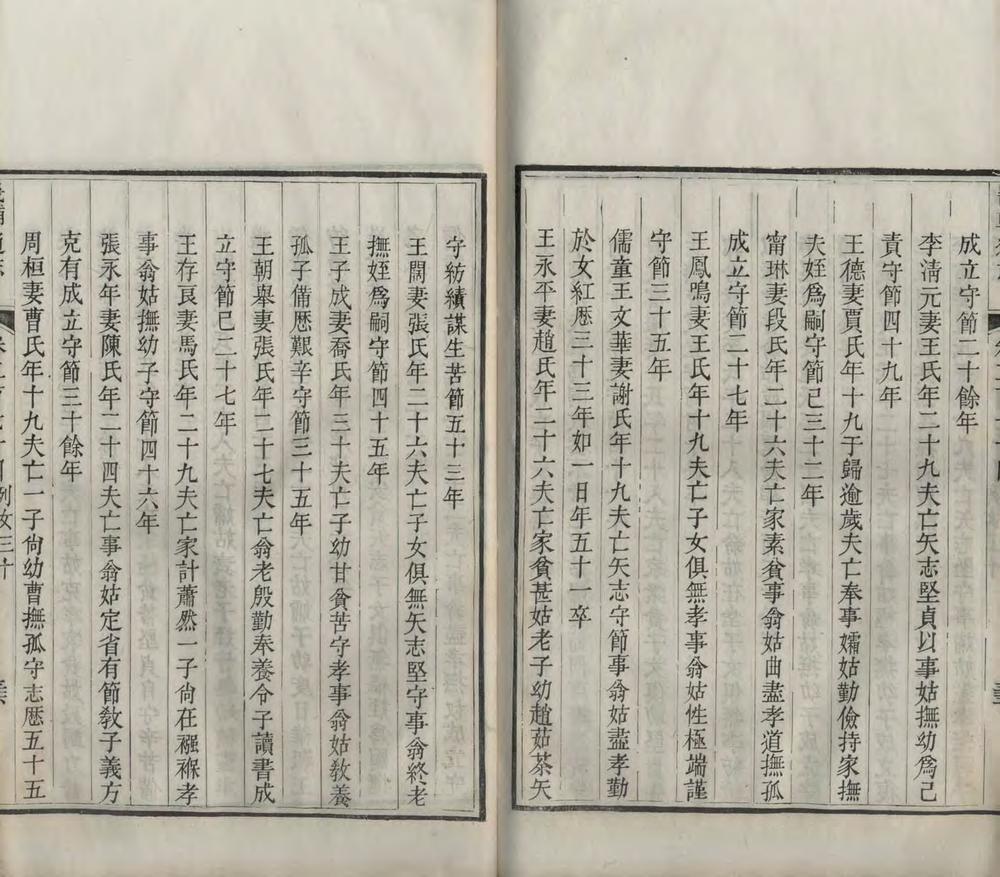 成立守節二十餘年
李淸元妻王氏年二十九夫亡矢志堅貞以事姑撫幼爲己
責守節四十九年
王德妻賈氏年十九于歸逾歲夫亡奉事孀姑勤儉持家撫
夫姪爲嗣守節已三十二年
甯琳妻段氏年二十六夫亡家素貧事翁姑曲盡孝道撫孤
成立守節二十七年
王鳳鳴妻王氏年十九夫亡子女俱無孝事翁姑性極端謹
守節三十五年
儒童王文華妻謝氏年十九夫亡矢志守節事翁姑盡孝勤
於女紅歷三十三年如一日年五十一卒
王永平妻趙氏年二十六夫亡家貧甚姑老子幼趙茹荼矢
守紡績謀生苦節五十三年
王閣妻張氏年二十六夫亡子女俱無矢志堅守事翁終老
撫姪爲嗣守節四十五年
王子成妻喬氏年三十夫亡子幼甘貧苦守孝事翁姑敎養
孤子備歷艱辛守節三十五年
王朝舉妻張氏年二十七夫亡翁老殷勤奉養令子讀書成
立守節已二十七年
王存艮妻馬氏年二十九夫亡家計蕭然一子尙在襁褓孝
事翁姑撫幼子守節四十六年
張永年妻陳氏年二十四夫亡事翁姑定省有節敎子義方
克有成立守節三十餘年
周桓妻曹氏年十九夫亡一子尙幼曹撫孤守志歷五十五
列女三十